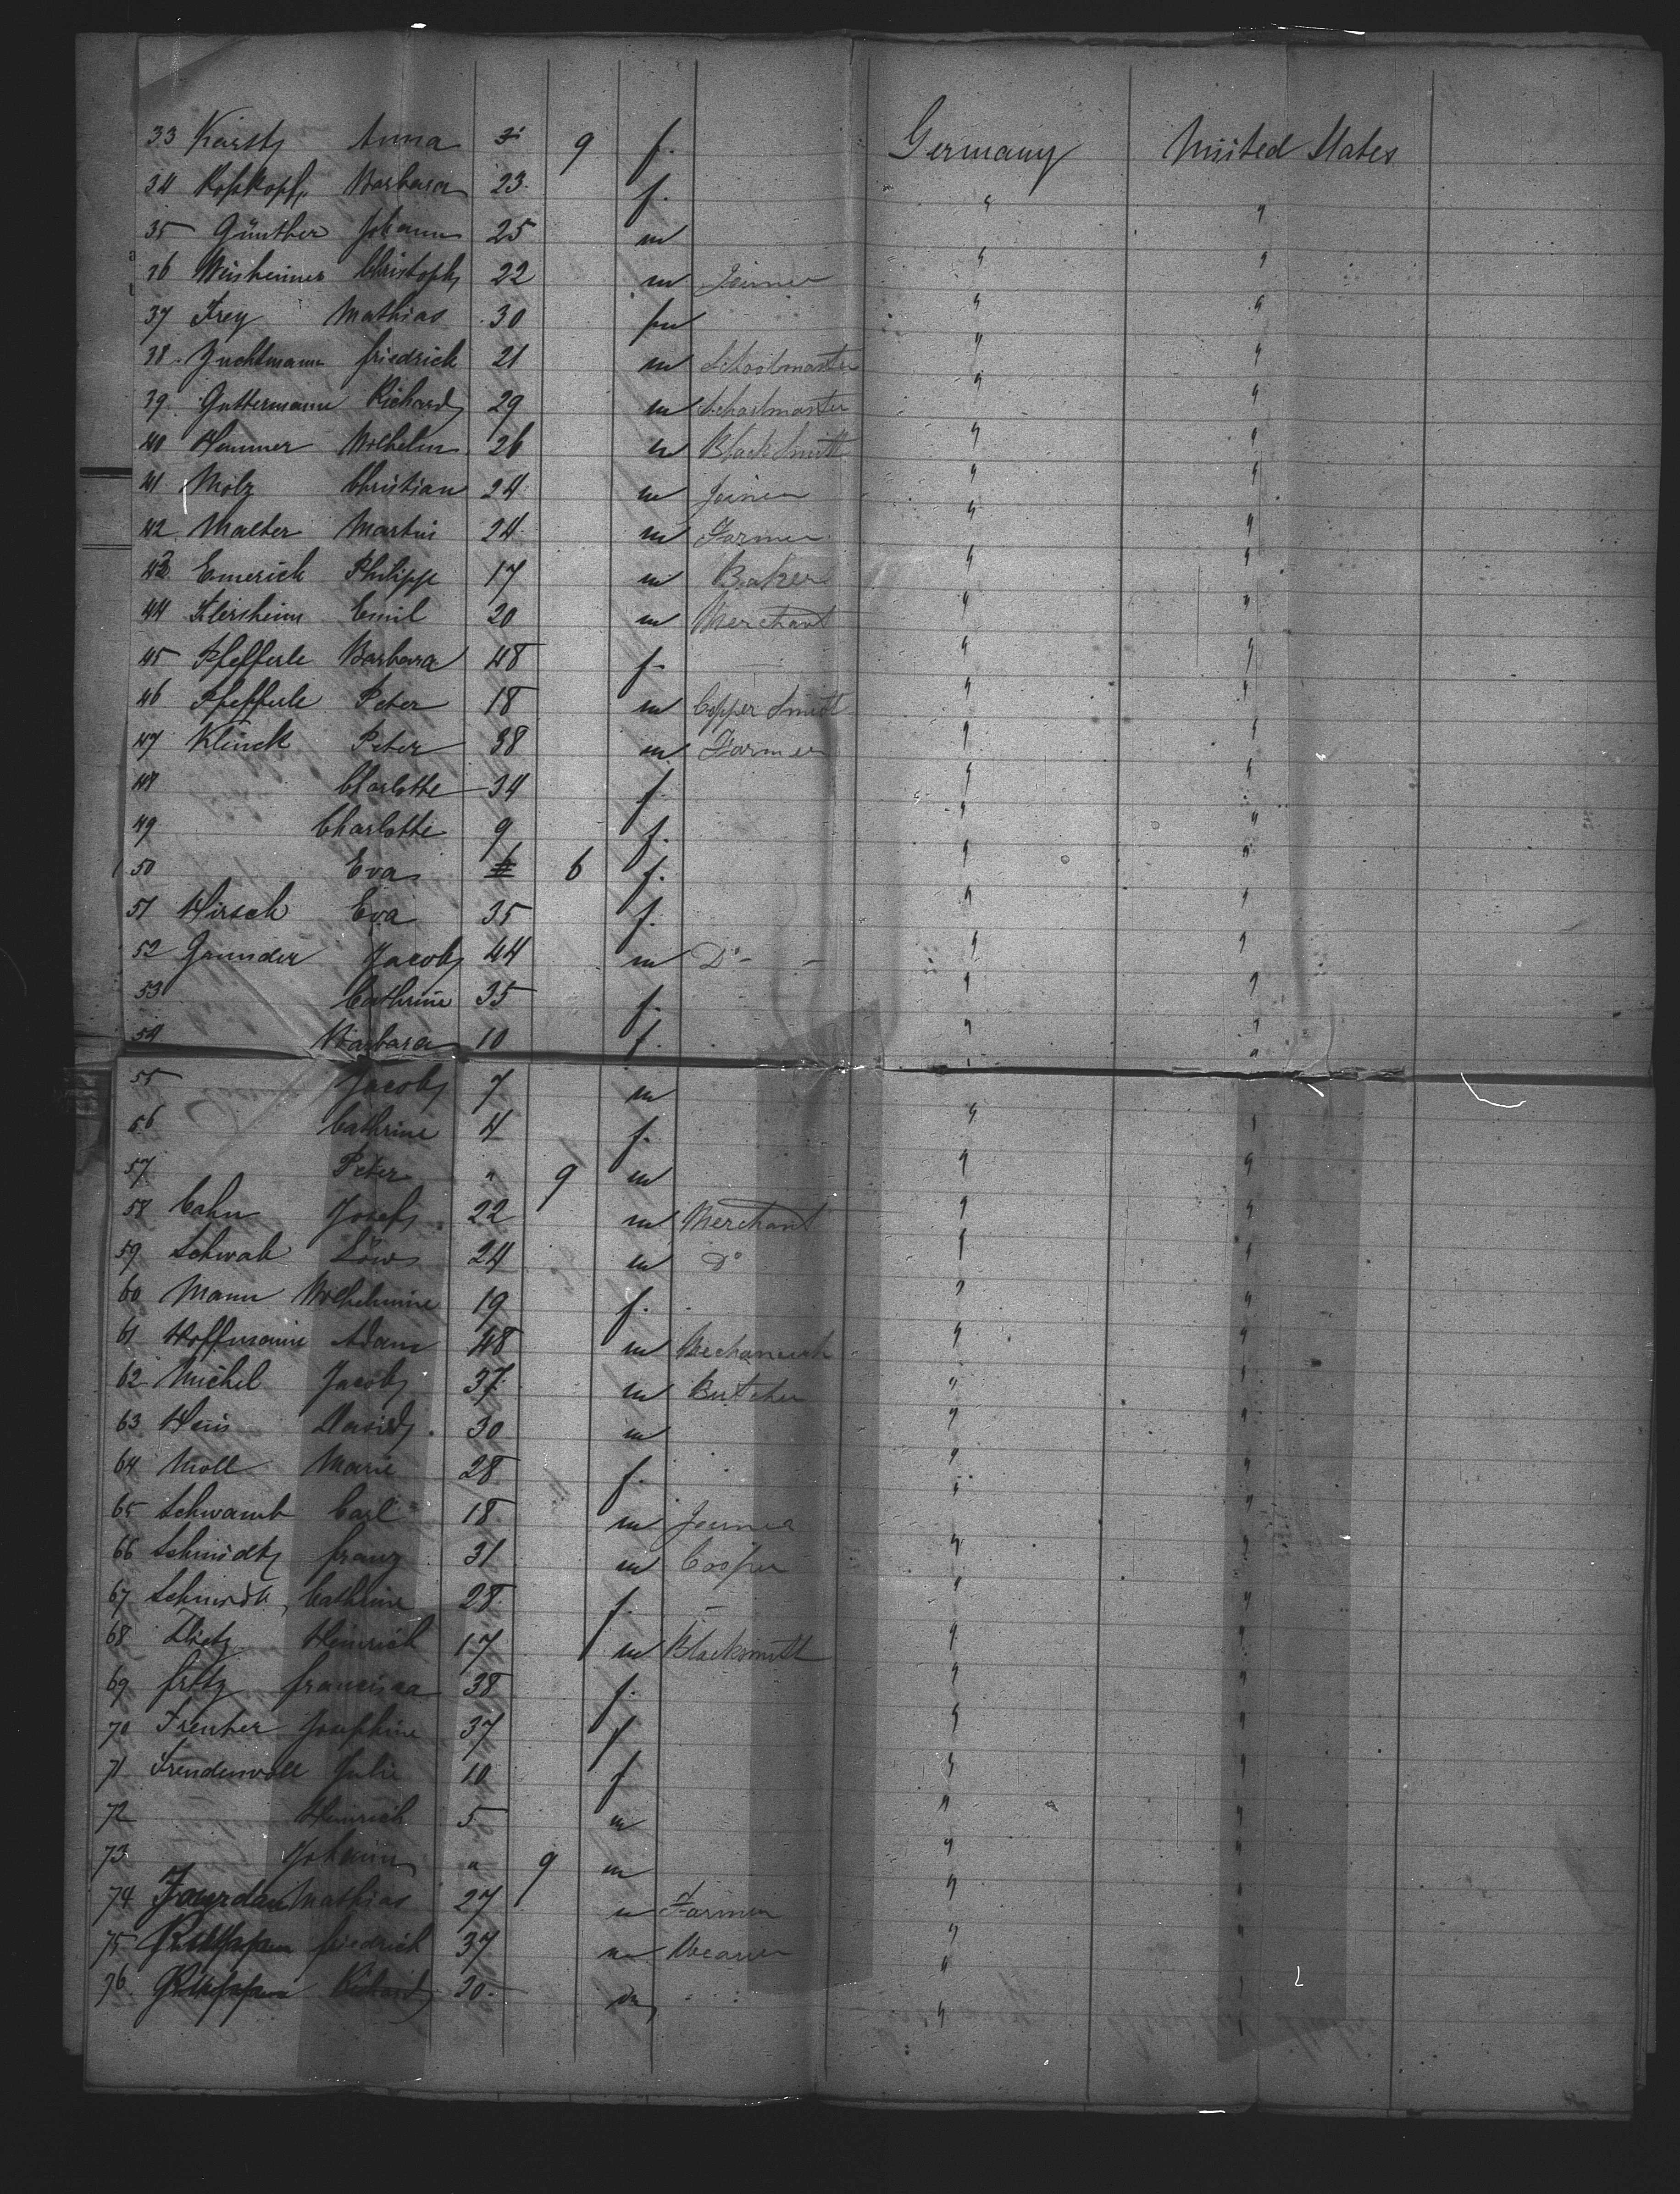 33 Karst Anna 9 f. Germany United States
34 Roskopf Barbara 23 f. " "
35 Günther Johann 25 m " "
36 Weisheimer Christoph 22 m Joiner " "
37 Frey Mathias 30 m " "
38 Zuchtmann friedrich 21 m Schoolmaster " "
39 Guttermann Richard 29 m Schoolmaster " "
40 Hammer Wilhelm 26 m BlackSmith " "
41 Molz Christian 24 m Joiner " "
42 Malter Martin 24 m Farmer " "
43 Emerich Philipp 17 m Baker " "
44 Flersheim Emil 20 m Merchant " "
45 Pfefferle Barbara 48 f. " "
46 Pfefferle Peter 18 m Copper Smith " "
47 Klinck Peter 38 m Farmer " "
48 Charlotte 34 f. " "
49 Charlotte 9 f. " "
50 Eva 6 f. " "
51 Hirsch Eva 35 f. " "
52 Gaunder Jacob 44 m Do " "
53 Cathrine 35 f. " "
54 Barbara 10 f. " "
55 Jacob 7 m
56 Cathrine 4 f. " "
57 Peter " 9 m " "
58 Cahn Josef 22 m Merchant " "
59 Schwab Löw 24 m Do " "
60 Mann Wilhelmine 19 f. " "
61 Hoffmann Adam 48 m " "
62 Michel Jacob 37 m Butcher " "
63 Heis David 30 m " "
64 Moll Marie 28 f. " "
65 Schwamb Carl 18 m Joiner " "
66 Schmidt franz 31 m Cooper " "
67 Schmidt Cathrine 28 f. " "
68 Dietz Heinrich 17 m Blacksmith " "
69 fritz francisca 38 f. " "
70 Josephine 37 f " "
71 Freudenvoll Julie 10 f " "
72 Heinrich 5 m " "
73 Johann " 9 m " "
74 Mathias 27 m Farmer " "
75 friedrich 37 m Weaver " "
76 Richard 20 m " "